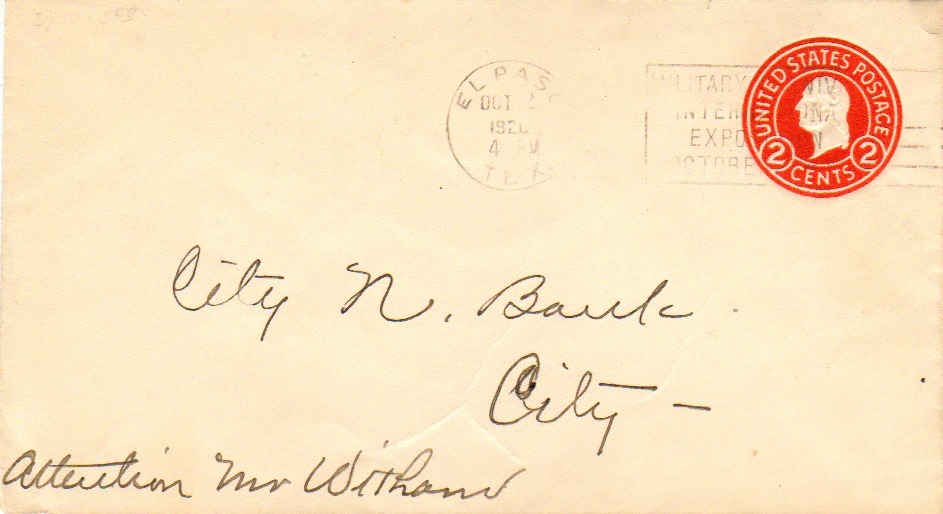 EL PASO
OCT 2
192
4 PM
TEX
MILITARY
INTER ONA
EXPO N
OCTOBER
UNITED STATES POSTAGE
2 CENTS 2
City N. Bank.
City —
Attention Mr